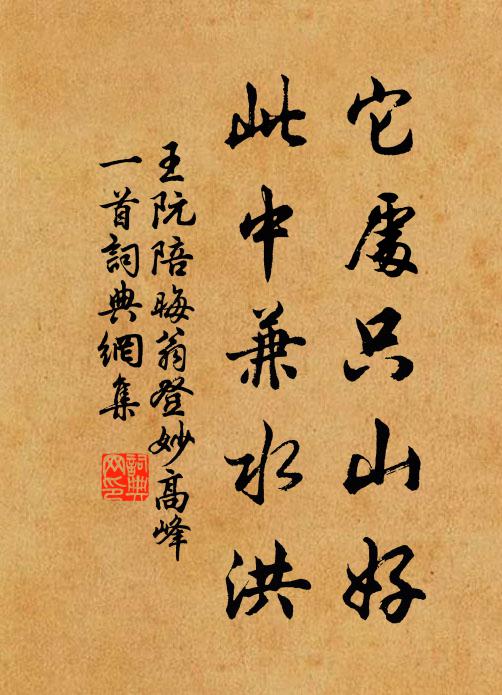 它處只山好
此中兼水洪
王阮陪晦翁登妙高峰
一首詞典網集
詞典
网印